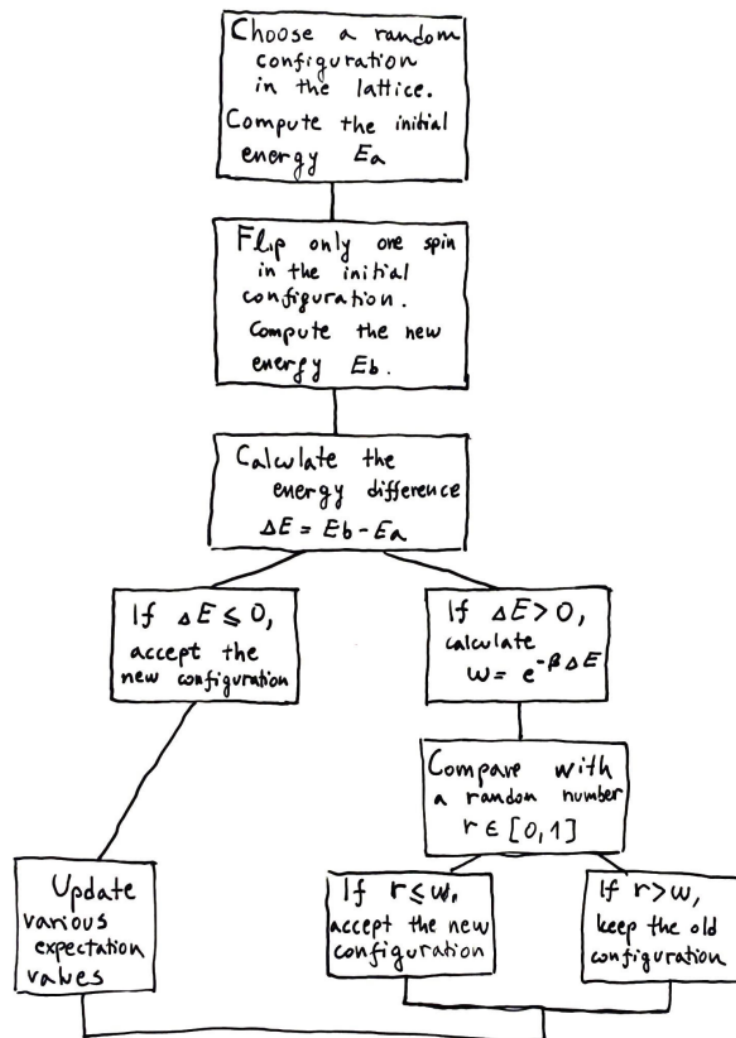 Choose a random
configuration
in the lattice.
Compute the initial
energy Ea
Flip only one spin
in the initial
configuration.
Compute the new
energy Eb.
Calculate the
energy difference
ΔE = Eb - Ea
If ΔE ≤ 0,
accept the
new configuration
If ΔE > 0,
calculate
w = e^{-βΔE}
Compare with
a random number
r ∈ [0,1]
Update
various
expectation
values
If r ≤ w,
accept the new
configuration
If r > w,
keep the old
configuration